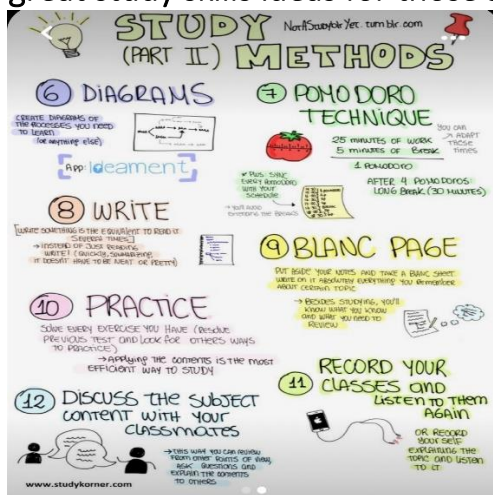 great study skills ideas for those
STUDY
NotAStudyblrYet.tumblr.com
(PART II) METHODS
6 DIAGRAMS
CREATE DIAGRAMS OF
THE PROCESSES YOU NEED
TO LEARN
(or anything else)
App: Ideament
7 POMODORO
TECHNIQUE
25 minutes of work
5 minutes of break
1 Pomodoro
YOU CAN
ADAPT
THESE
TIMES
AFTER 4 POMODOROS
LONG BREAK (30 MINUTES)
* PLUS: SYNC
EVERY POMODORO
WITH YOUR
SCHEDULE
8 WRITE
[WRITE SOMETHING IS THE EQUIVALENT TO READ IT
SEVERAL TIMES]
→ INSTEAD OF JUST READING,
WRITE! (QUICKLY, SUMMARIZING
IT DOESN'T HAVE TO BE NEAT OR PRETTY)
9 BLANC PAGE
PUT ASIDE YOUR NOTES AND TAKE A BLANC SHEET
WRITE ON IT ABSOLUTELY EVERYTHING YOU REMEMBER
ABOUT CERTAIN TOPIC
→ BESIDES STUDYING, YOU'LL
KNOW WHAT YOU KNOW
AND WHAT YOU NEED TO
REVIEW
10 PRACTICE
SOLVE EVERY EXERCISE YOU HAVE (RESOLVE
PREVIOUS TEST AND LOOK FOR OTHERS WAYS
TO PRACTICE)
→ Applying the contents is the most
efficient way to study
11 RECORD YOUR
CLASSES and
Listen to them
Again
OR RECORD
YOUR SELF
EXPLAINING THE
TOPIC AND LISTEN
TO IT
12 DISCUSS the SUBJECT
content with your
classmates
→ THIS WAY YOU CAN REVIEW
FROM OTHER POINTS OF VIEW,
ASK QUESTIONS AND
EXPLAIN THE CONTENTS
TO OTHERS
www.studykorner.com